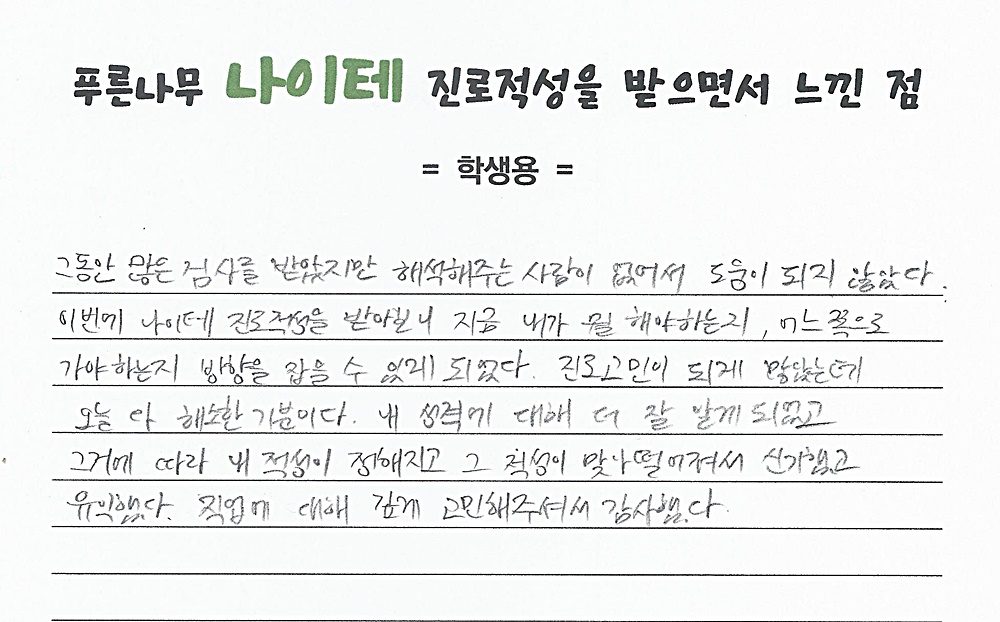 푸른나무 나이테 진로적성을 받으면서 느낀 점
= 학생용 =
그동안 많은 검사를 받았지만 해석해주는 사람이 없어서 도움이 되지 않았다.
이번에 나이테 진로적성을 받아보니 지금 내가 뭘 해야하는지, 어느쪽으로
가야하는지 방향을 잡을 수 있게 되었다. 진로고민이 되게 많았는데
오늘 다 해소한 기분이다. 내 성격에 대해 더 잘 알게 되었고
그거에 따라 내 적성이 정해지고 그 적성이 맞아떨어져서 신기했고
유익했다. 직업에 대해 깊게 고민해주셔서 감사했다.